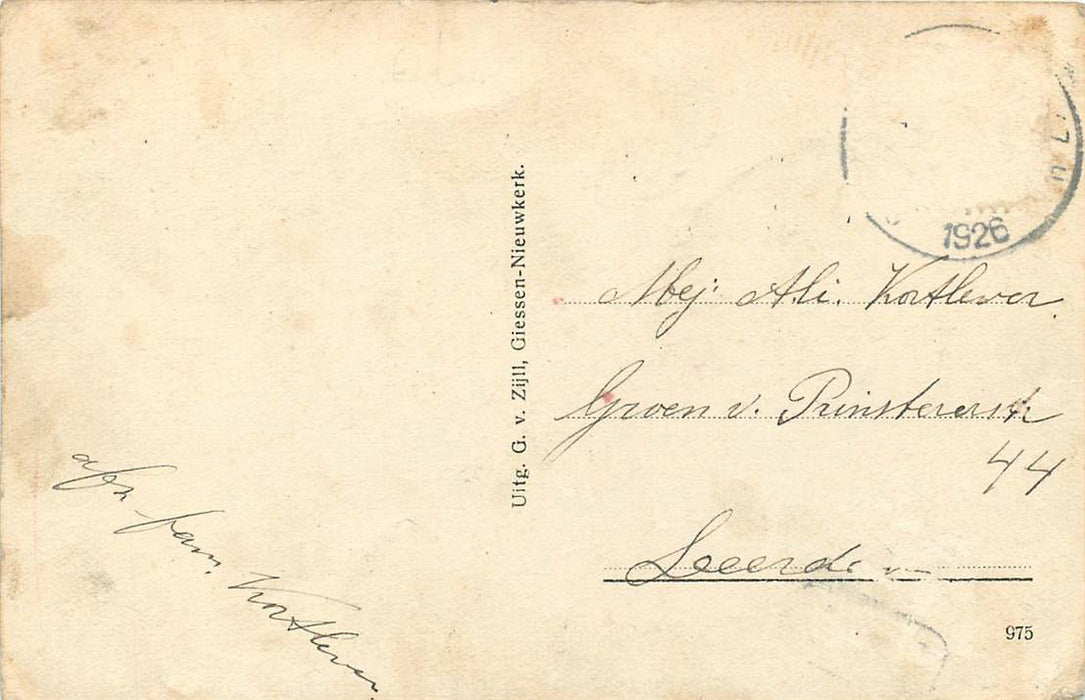 1926
Uitg. G. v. Zijll, Giessen-Nieuwkerk.
Mej. Ali. Kortlever.
Groen v. Prinstererstr
44
Leerdam
afz. fam. Kortlever.
975